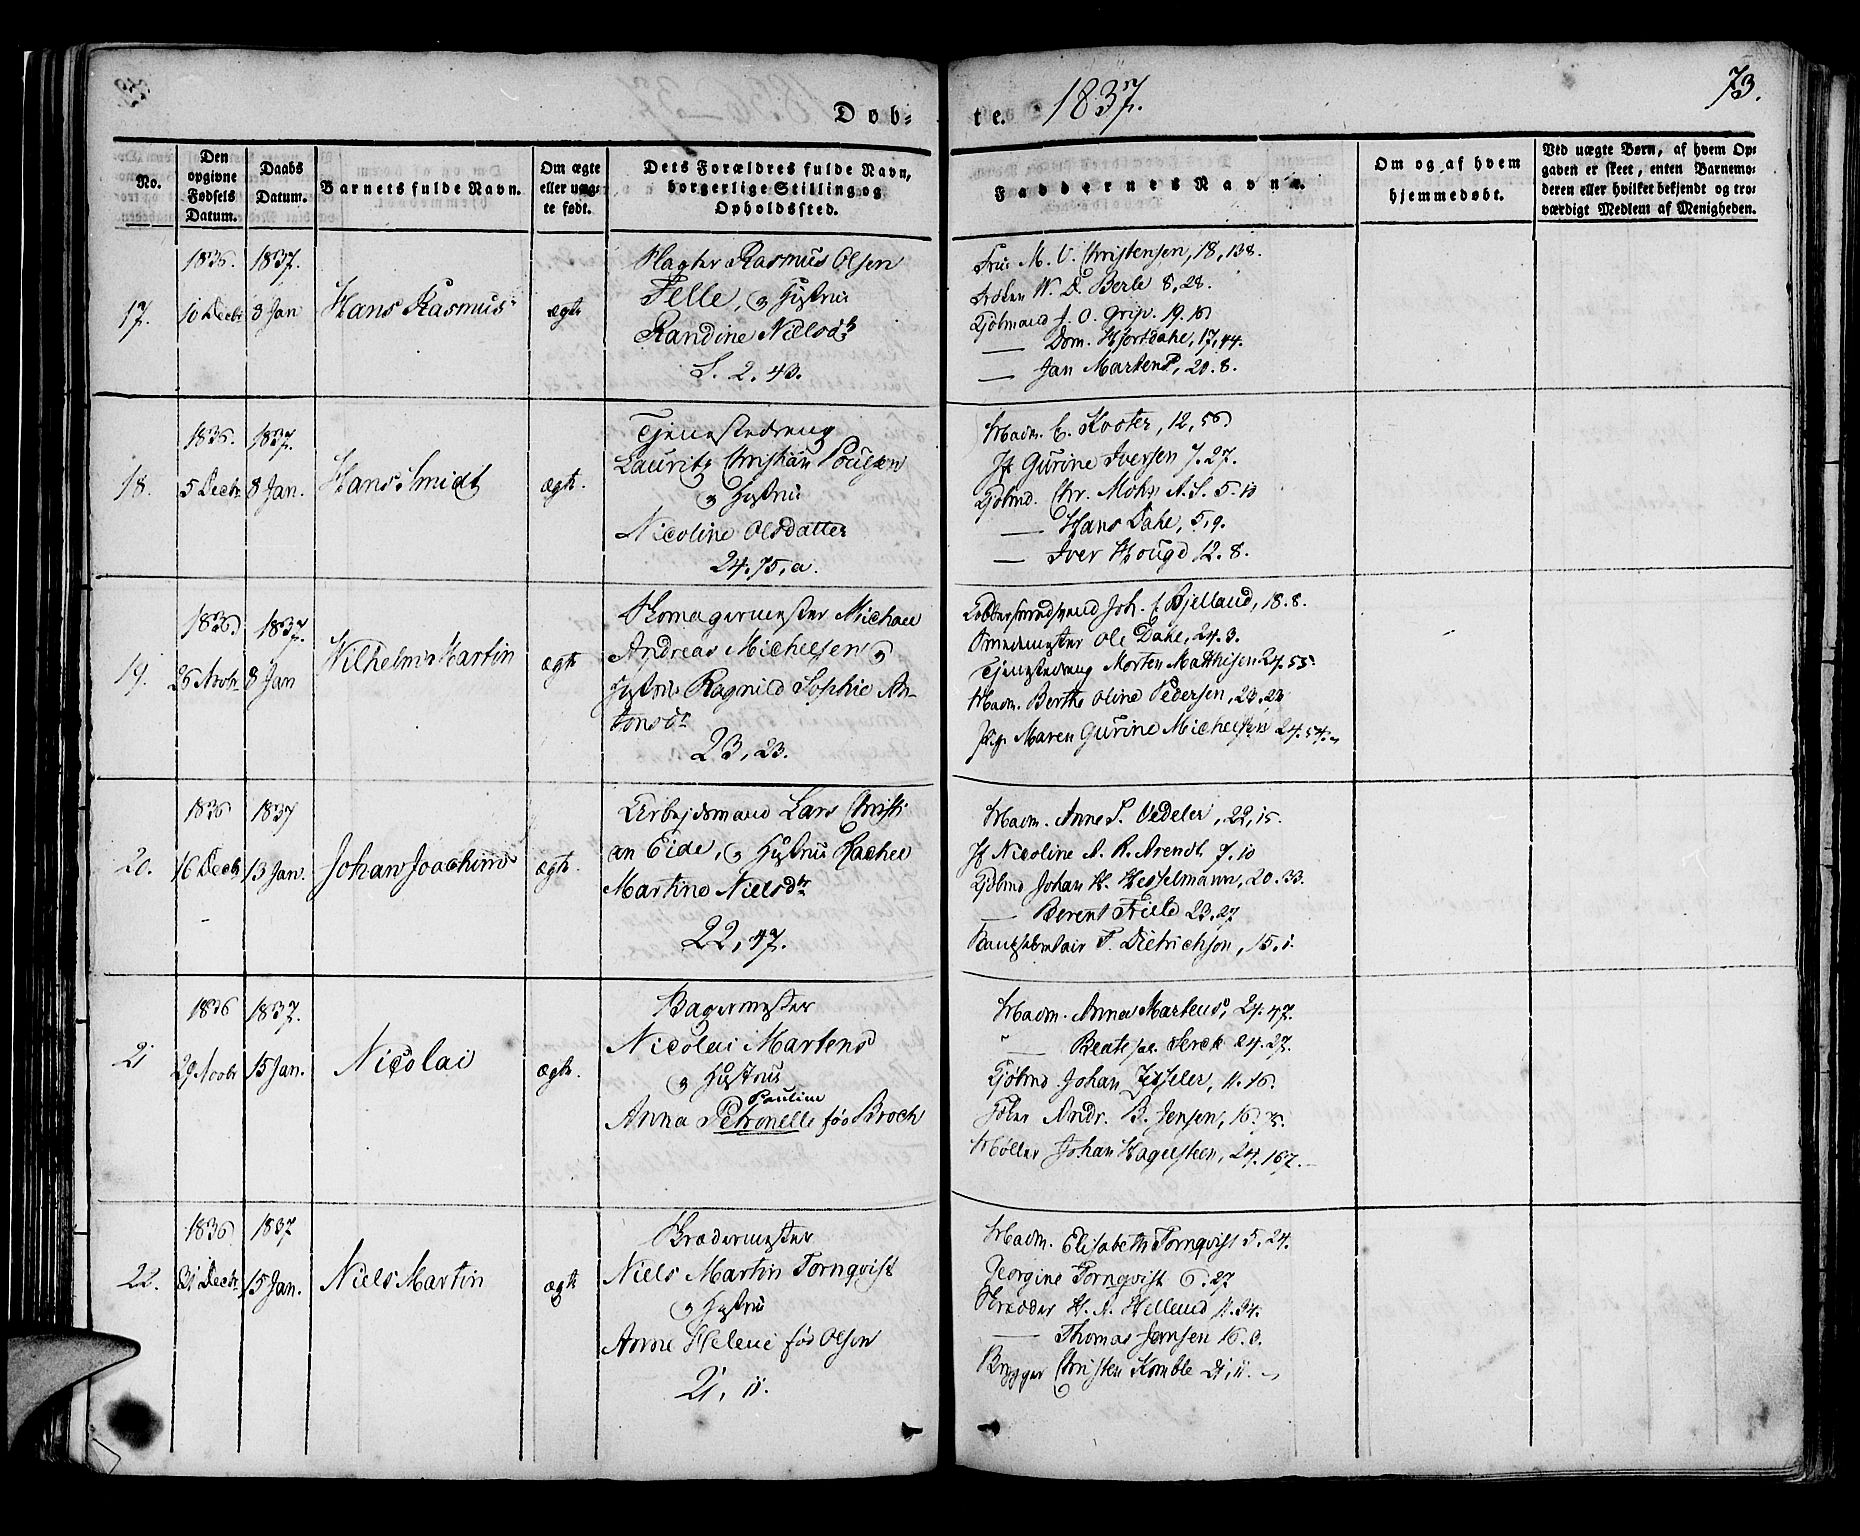 73.
Døb-
te. 1837.
No.
Den opgivne Fødsels Datum.
Daabs Datum.
Barnets fulde Navn.
Om ægte eller uæg-te født.
Dets Forældres fulde Navn, borgerlige Stilling og Opholdssted.
Faddernes Navne.
Om og af hvem hjemmedøbt.
Ved uægte Børn, af hvem Op-
gaven er skeet, enten Barnemo-
deren eller hvilket bekjendt og tro-
værdigt Medlem af Menigheden.
17.
1836.
10 Decbr
1837.
3 Jan
Hans Rasmus
ægte
Slagter Rasmus Olsen
Felle, og Hustrue
Randine Nielsdtr
S. 2. 43.
Frue M. V. Christensen, 18, 138.
Frøken W. D. Berle 8, 28.
Kjøbmand J. O. Grip. 19. 16
— Dom. Hjortdahl, 17, 44.
— Jan Martens, 20. 8.
18.
1836.
5 Decbr
1837.
8 Jan.
Hans Smidt
ægte.
Tjenestedreng
Lauritz Christian Poulsen
og Hustrue
Nicoline Olsdatter
24. 75, a.
Madm. C. Koster, 12, 56
Jf Gurine Iversen 7. 27.
Kjøbmd. Chr. Mohn A. S. 5. 10
— Hans Dahl, 5, 9.
— Iver Hougd 12. 8.
19.
1836
26 Novbr
1837.
8 Jan
Wilhelm Martin
ægte
Skomagermester Michael
Andreas Michelsen og
Hustrue Ragnild Sophie An-
tonsdr
23, 23.
Kobbersmedsvend Joh. C Bjelland, 18. 8.
Smedmester Ole Dahl, 24. 3.
Tjenestedreng Morten Matthisen 24. 55.
Madm. Berthe Oline Pedersen, 23, 23
Pige Maren Gurine Michelsen 24. 54.
20.
1836
16 Decbr
1837
13 Jan.
Johan Joachim
ægte.
Arbejdsmand Lars Christi
an Eide, og Hustrue Rachel
Martine Nielsdtr
22, 47.
Madm. Anne S. Vedeler, 22, 15.
Jf Nicoline A. R. Arendt, 7. 10
Kjøbmd Johan H. Hesselmann, 20. 33.
— Berent Friele 23. 27
P. Dietrichson, 15, 1.
21
1836
29 Novbr
1837.
15 Jan.
Nicolai
ægte.
Bagermester
Nicolai Martens
og Hustrue
Pauline
Anna Petronelle fød Broch
Madm. Anna Martens, 24. 47.
— Beate Serck 24. 27.
Kjøbmd Johan Fisseler, 11. 16.
Andr. B. Jensen, 16. 75.
Møller Johan Hagelsteen, 24. 167.
22.
1836
31 Decbr
1837
15 Jan.
Niels Martin
ægte
Skrædermester
Niels Martin Tornqvist
og Hustrue
Anne Helene fød Olsen
21, 11.
Madm. Elisabeth Tornqvist 5, 24.
Georgine Tornqvist 6. 27
Skræder H. N. Helland 11. 34.
— Thomas Jansen 16. 6.
Brygger Christen Komble 21, 11.